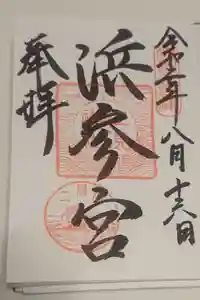 令和年八月十六日
浜参宮
奉拝